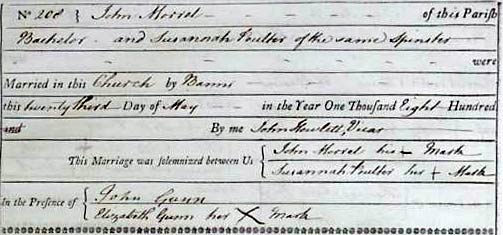 No 208 { John Morrel of this Parish
Bachelor - and Susannah Poulter of the same Spinster
- - - - - - - - were
Married in this Church by Banns
this twenty third - Day of May - in the Year One Thousand Eight Hundred
and By me John Hewlett, Vicar
This Marriage was solemnized between Us { John Morrel his + Mark
Susannah Poulter her + Mark
In the Presence of { John Gunn
Elizabeth Gunn her X Mark